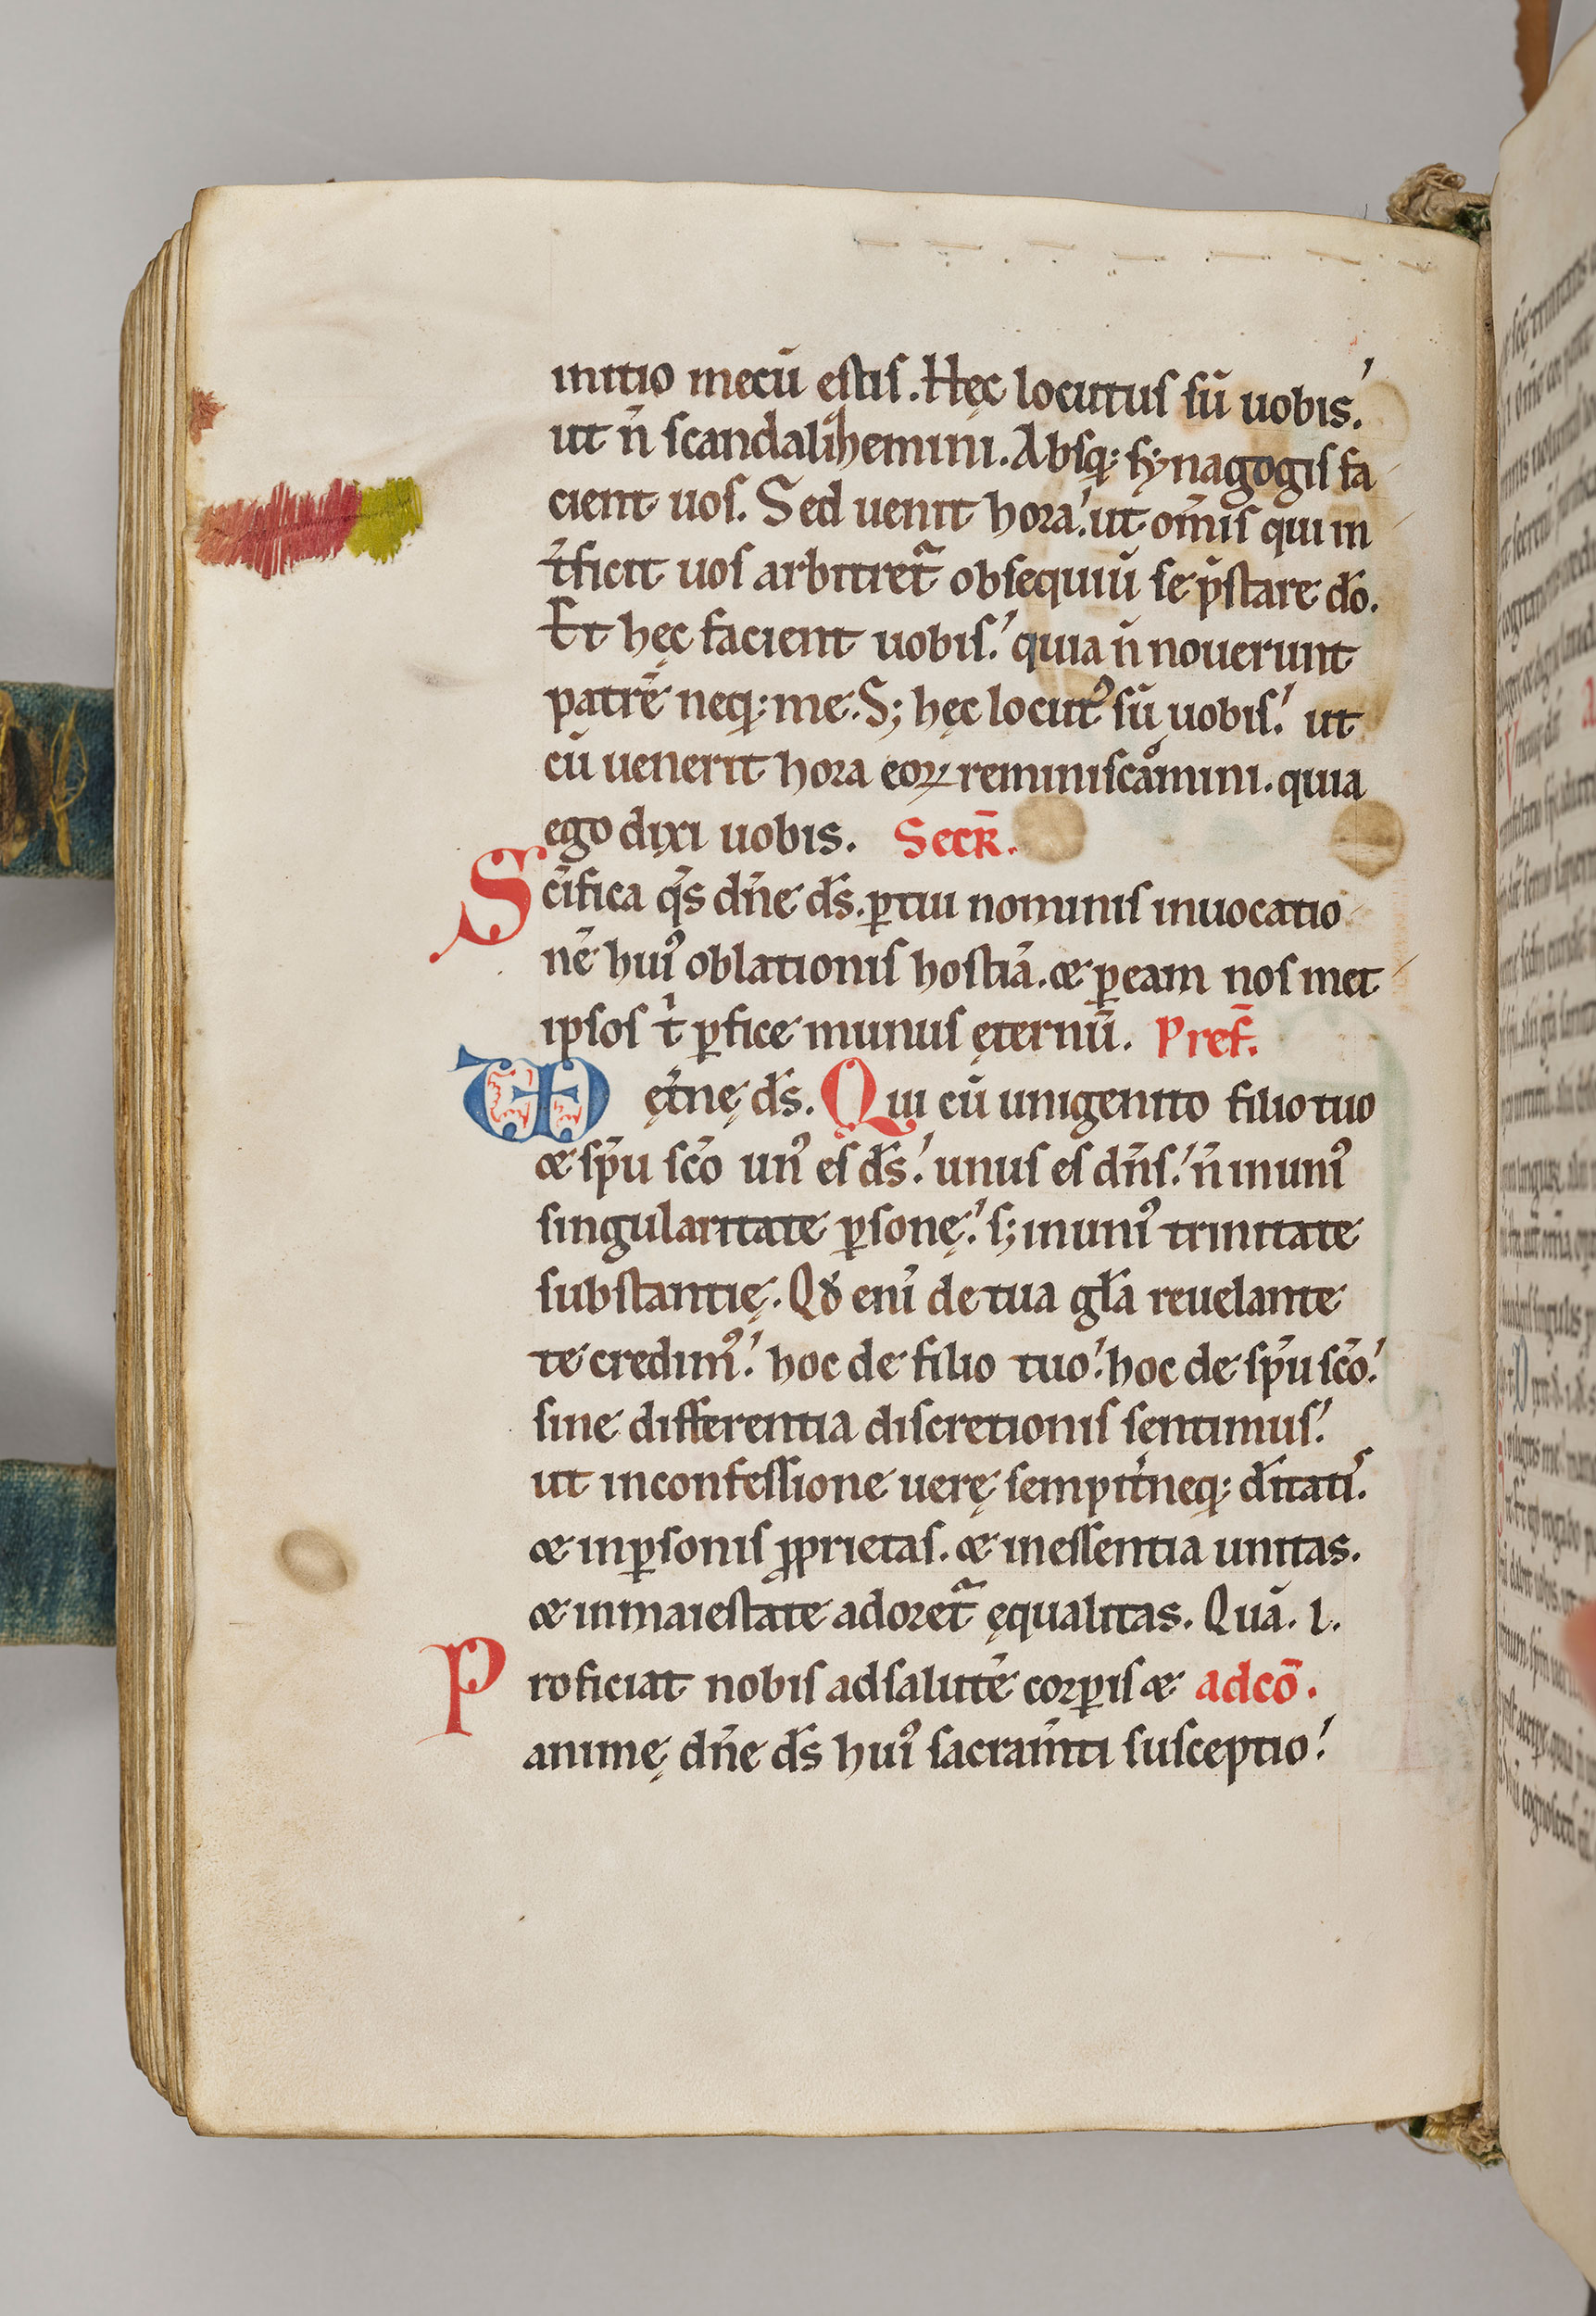 initio mecū estis. Hęc locutus sū uobis.
ut n̄ scandalihemini. Absq; synagogis fa
cient uos. Sed uenit hora. ut om̄is qui in
t̄ficit uos arbitret̄ obsequiū se p̄stare do̅.
Et hęc facient uobis. quia n̄ nouerunt
patrē neq; me. S; hęc locut᾽ sū uobis. ut
cū uenerit hora eoꝝ reminiscamini. quia
ego dixi uobis. Secr̄.
Sc̄ifica q̄s dn̄e ds̄. ꝑ tui nominis inuocatio
nē hui᾽ oblationis hostiā. & ꝑ eam nos met
ipsos tⁱ ꝑfice munus ęternū. Pref̄.
VD ęt̄nę ds̄. Qui cū unigenito filio tuo
& sp̄u sc̄o un᾽ es ds̄. unus es dn̄s. n̄ in uni᾽
singularitate ꝑsonę. s; in uni᾽ trinitate
substantię. Qđ enī de tua gl̄a reuelante
te credim᾽. hoc de filio tuo. hoc de sp̄u sc̄o.
sine differentia discretionis sentimus.
ut in confessione uerę sempit̄neq; dītati᾽.
& in ꝑsonis ꝓprietas. & in essentia unitas.
& in maiestate adoret̄ ęqualitas. Quā. l.
Proficiat nobis ad salutē corꝑis & ad cō.
animę dn̄e ds̄ hui᾽ sacram̄ti susceptio.